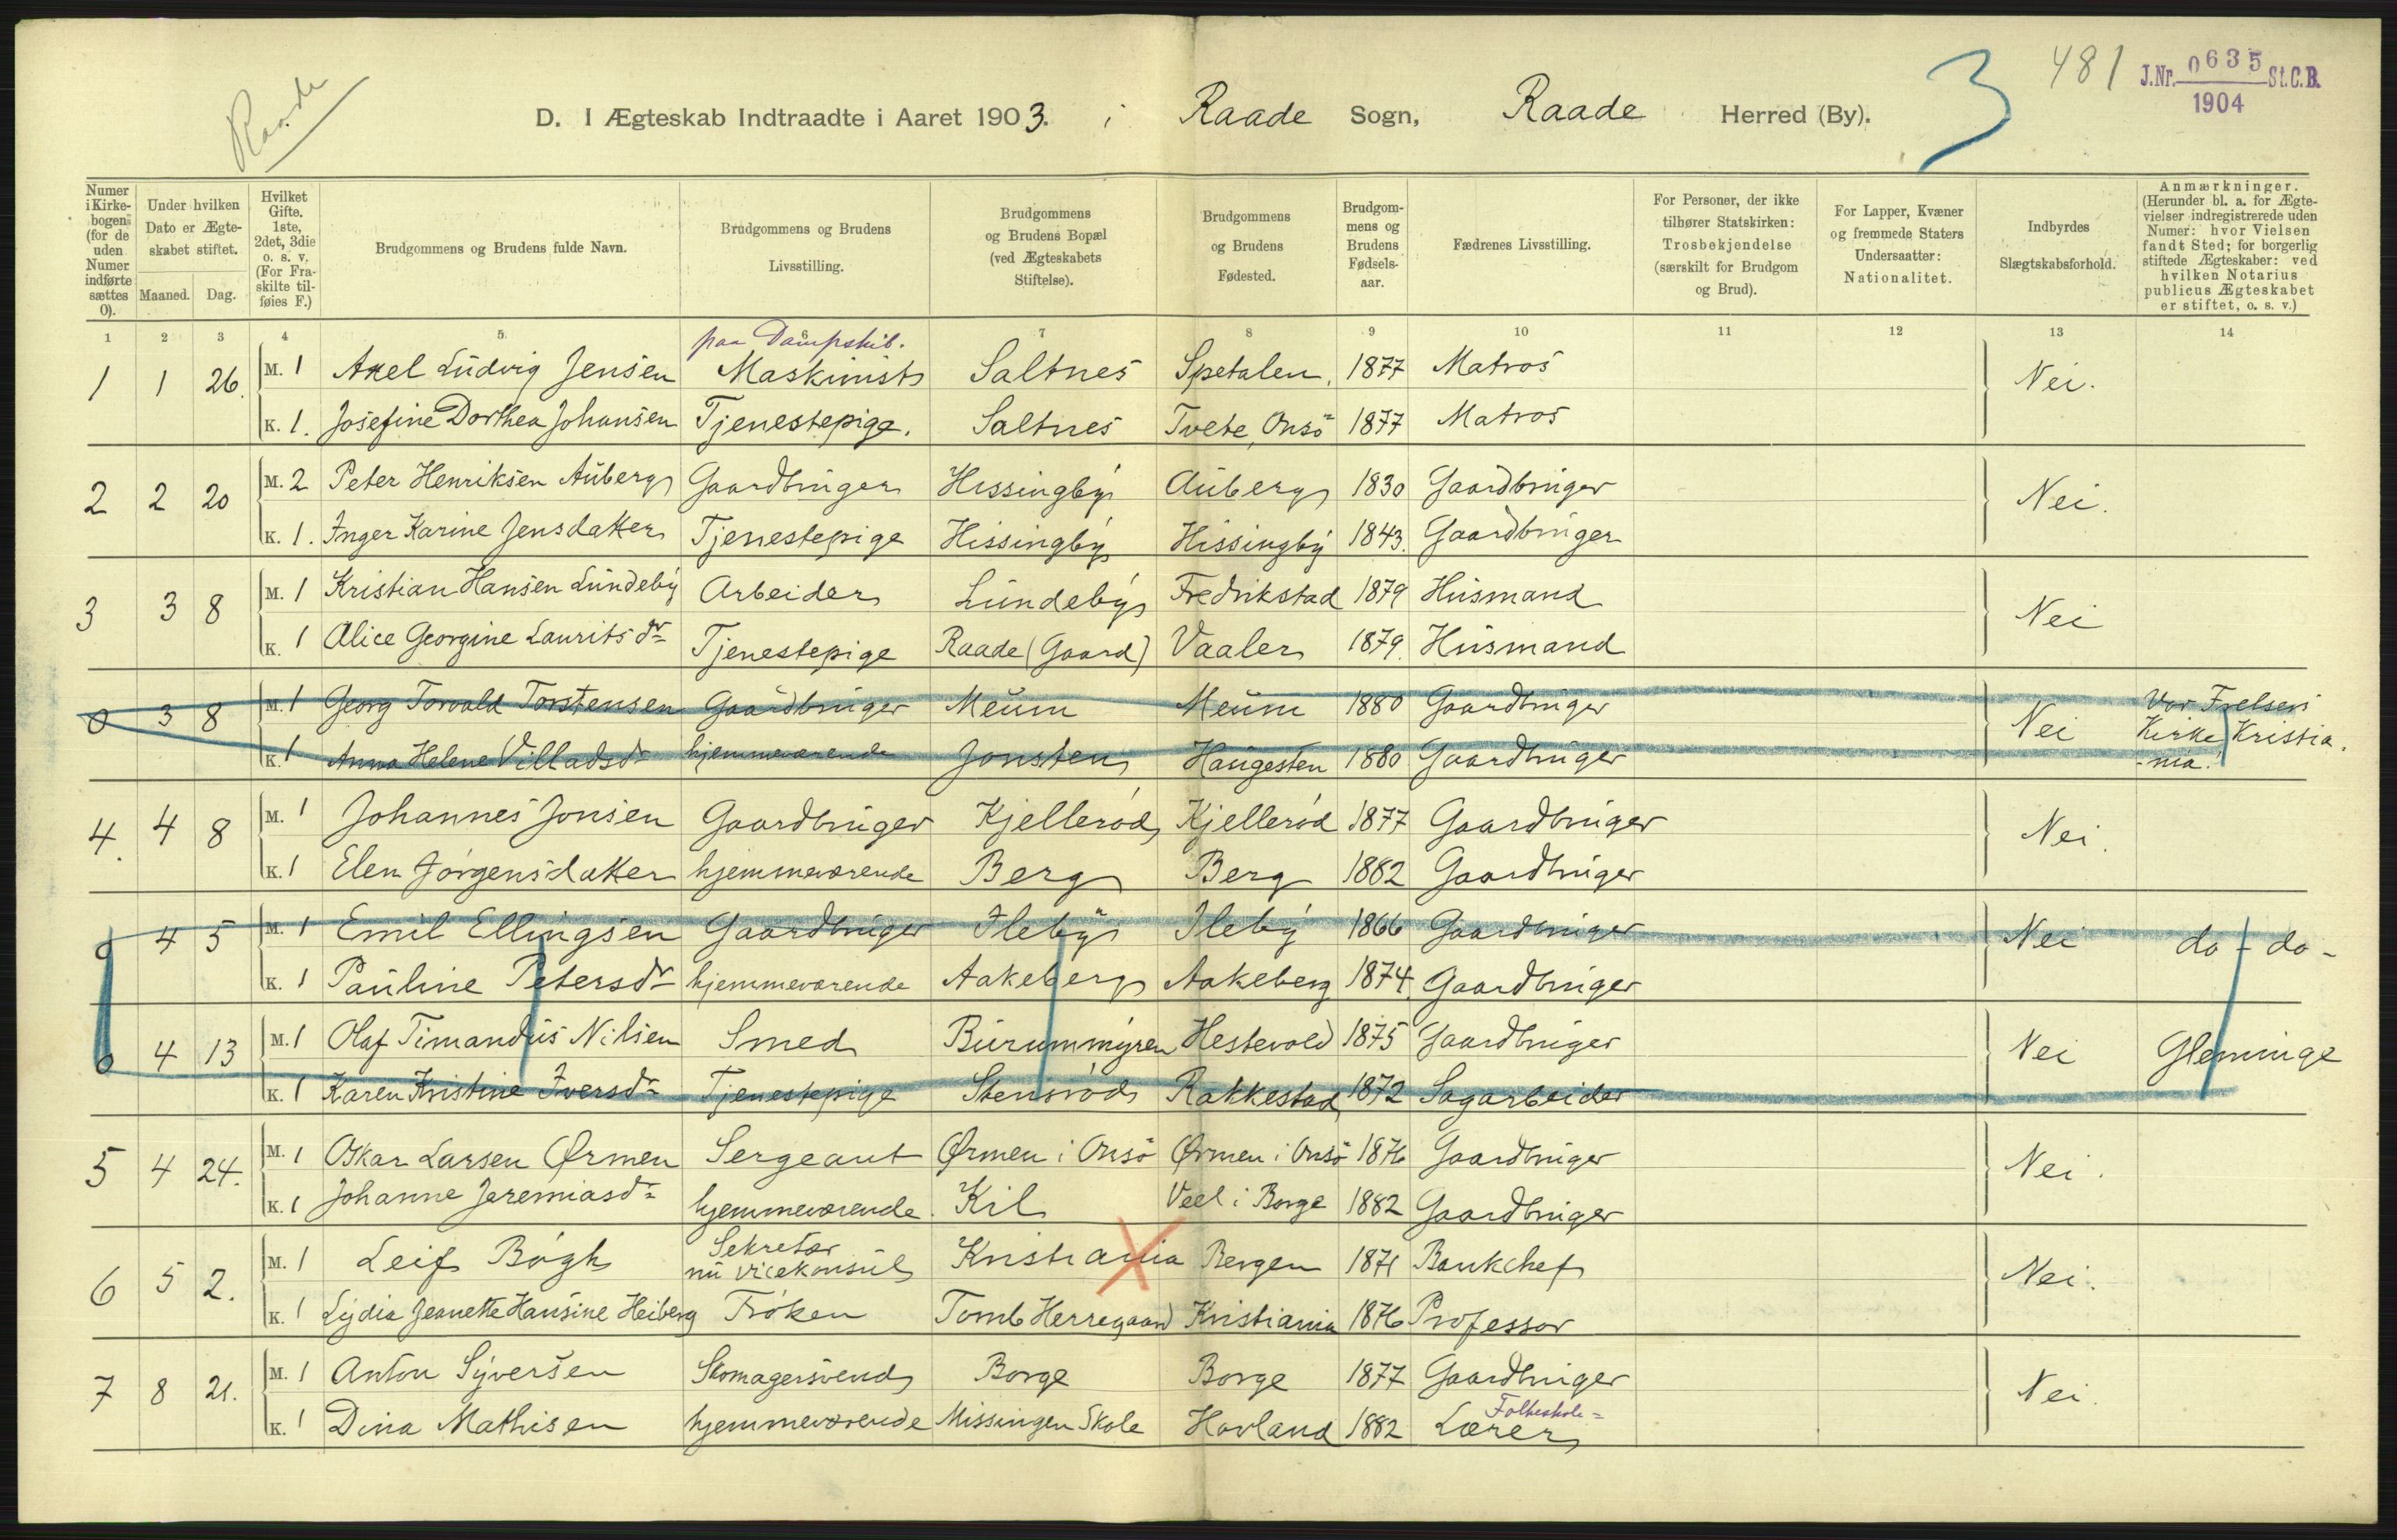 Raade
D. I Ægteskab Indtraadte i Aaret 1903. i Raade Sogn, Raade Herred (By).
3
481
J.Nr. 0635 St.C.B.
1904
Numer i Kirkebogen (for de uden Numer indførte sættes 0).
Under hvilken Dato er Ægteskabet stiftet.
Maaned. Dag.
Hvilket Gifte. 1ste, 2det, 3die o. s. v. (For Fraskilte tilføies F.)
Brudgommens og Brudens fulde Navn.
Brudgommens og Brudens Livsstilling.
Brudgommens og Brudens Bopæl (ved Ægteskabets Stiftelse).
Brudgommens og Brudens Fødested.
Brudgommens og Brudens Fødselsaar.
Fædrenes Livsstilling.
For Personer, der ikke tilhører Statskirken: Trosbekjendelse (særskilt for Brudgom og Brud).
For Lapper, Kvæner og fremmede Staters Undersaatter: Nationalitet.
Indbyrdes Slægtskabsforhold.
Anmærkninger. (Herunder bl. a. for Ægtevielser indregistrerede uden Numer: hvor Vielsen fandt Sted; for borgerlig stiftede Ægteskaber: ved hvilken Notarius publicus Ægteskabet er stiftet, o. s. v.)
1 2 3 4 5 6 7 8 9 10 11 12 13 14
paa Dampskib.
1 1 26. M. 1 Axel Ludvig Jensen Maskinist Saltnes Spetalen. 1877 Matros Nei.
K. 1. Josefine Dorthea Johansen Tjenestepige. Saltnes Tvete, Onsö 1877 Matros
2 2 20 M. 2 Peter Henriksen Auberg Gaardbruger Hissingby Auberg 1830 Gaardbruger Nei.
K. 1. Inger Karine Jensdatter Tjenestepige Hissingby Hissingby 1843. Gaardbruger
3 3 8 M. 1 Kristian Hansen Lundeby Arbeider Lundeby Fredrikstad 1879 Husmand Nei
K. 1 Alice Georgine Laurits dr Tjenestepige Raade (Gaard) Vaaler 1879. Husmand
0 3 8 M. 1 Georg Torvald Torstensen Gaardbruger Meum Meum 1880 Gaardbruger Nei Vor Frelsers Kirke, Kristia-
K. 1 Anna Helene Villadsdr hjemmeværende Jonsten Haugesten 1880 Gaardbruger -nia.
4. 4 8 M. 1 Johannes Jonsen Gaardbruger Kjellerød Kjellerød 1877 Gaardbruger Nei.
K. 1 Elen Jørgensdatter hjemmeværende Berg Berg 1882 Gaardbruger
0 4 5 M. 1 Emil Ellingsen Gaardbruger Ileby Ileby 1866 Gaardbruger Nei do - do -
K. 1 Pauline Petersdr hjemmeværende Aakeberg Aakeberg 1874. Gaardbruger
0 4 13 M. 1 Olaf Timandus Nilsen Smed Burummyren Hestevold 1875 Gaardbruger Nei Glemminge
K. 1 Karen Kristine Iversdr Tjenestepige Stensrød Rakkestad 1872 Sagarbeider
5 4 24. M. 1 Oskar Larsen Ørmen Sergeant Ørmen i Onsö Ørmen i Onsö 1876 Gaardbruger Nei.
K. 1 Johanne Jeremiasdr hjemmeværende. Kil Veel i Borge 1882 Gaardbruger
6 5 2. M. 1 Leif Bögh Sekretær nu vicekonsul Kristiania Bergen 1871 Bankchef Nei.
K. 1 Lydia Jeanette Hansine Heiberg Frøken Tomb Herregaard Kristiania 1876 Professor
7 8 21. M. 1 Anton Syversen Skomagersvend Borge Borge 1877 Gaardbruger Nei.
K. 1 Dina Mathisen hjemmeværende Missingen Skole Hovland 1882 Folkeskole= Lærer